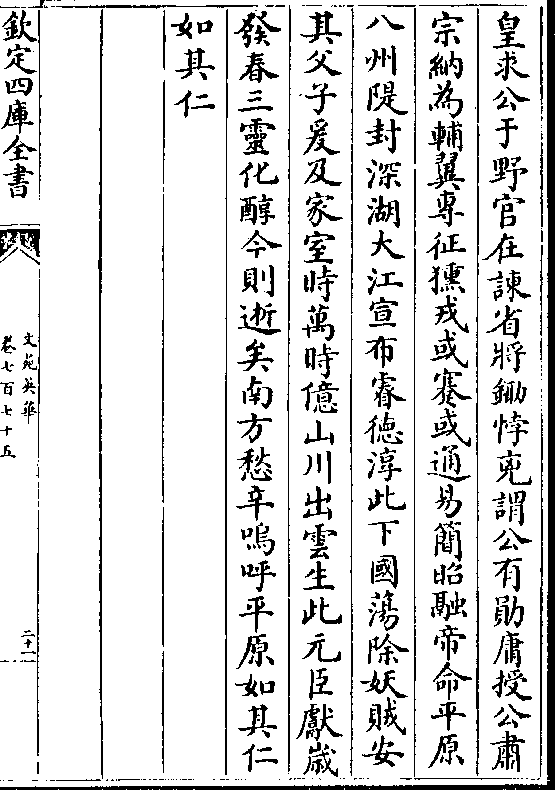 皇求公于野官在諫省將鋤悖兇謂公有勛庸授公肅
宗納為輔翼專征獯戎或蹇或通易簡昭融帝命平原
八州隄封深湖大江宣布睿德淳此下國蕩除妖賊安
其父子爰及家室時萬時億山川出雲生此元臣獻歳
發春三靈化醇今則逝矣南方愁辛嗚呼平原如其仁
如其仁
欽定四庫全書
文苑英華
卷七百七十五
二十一